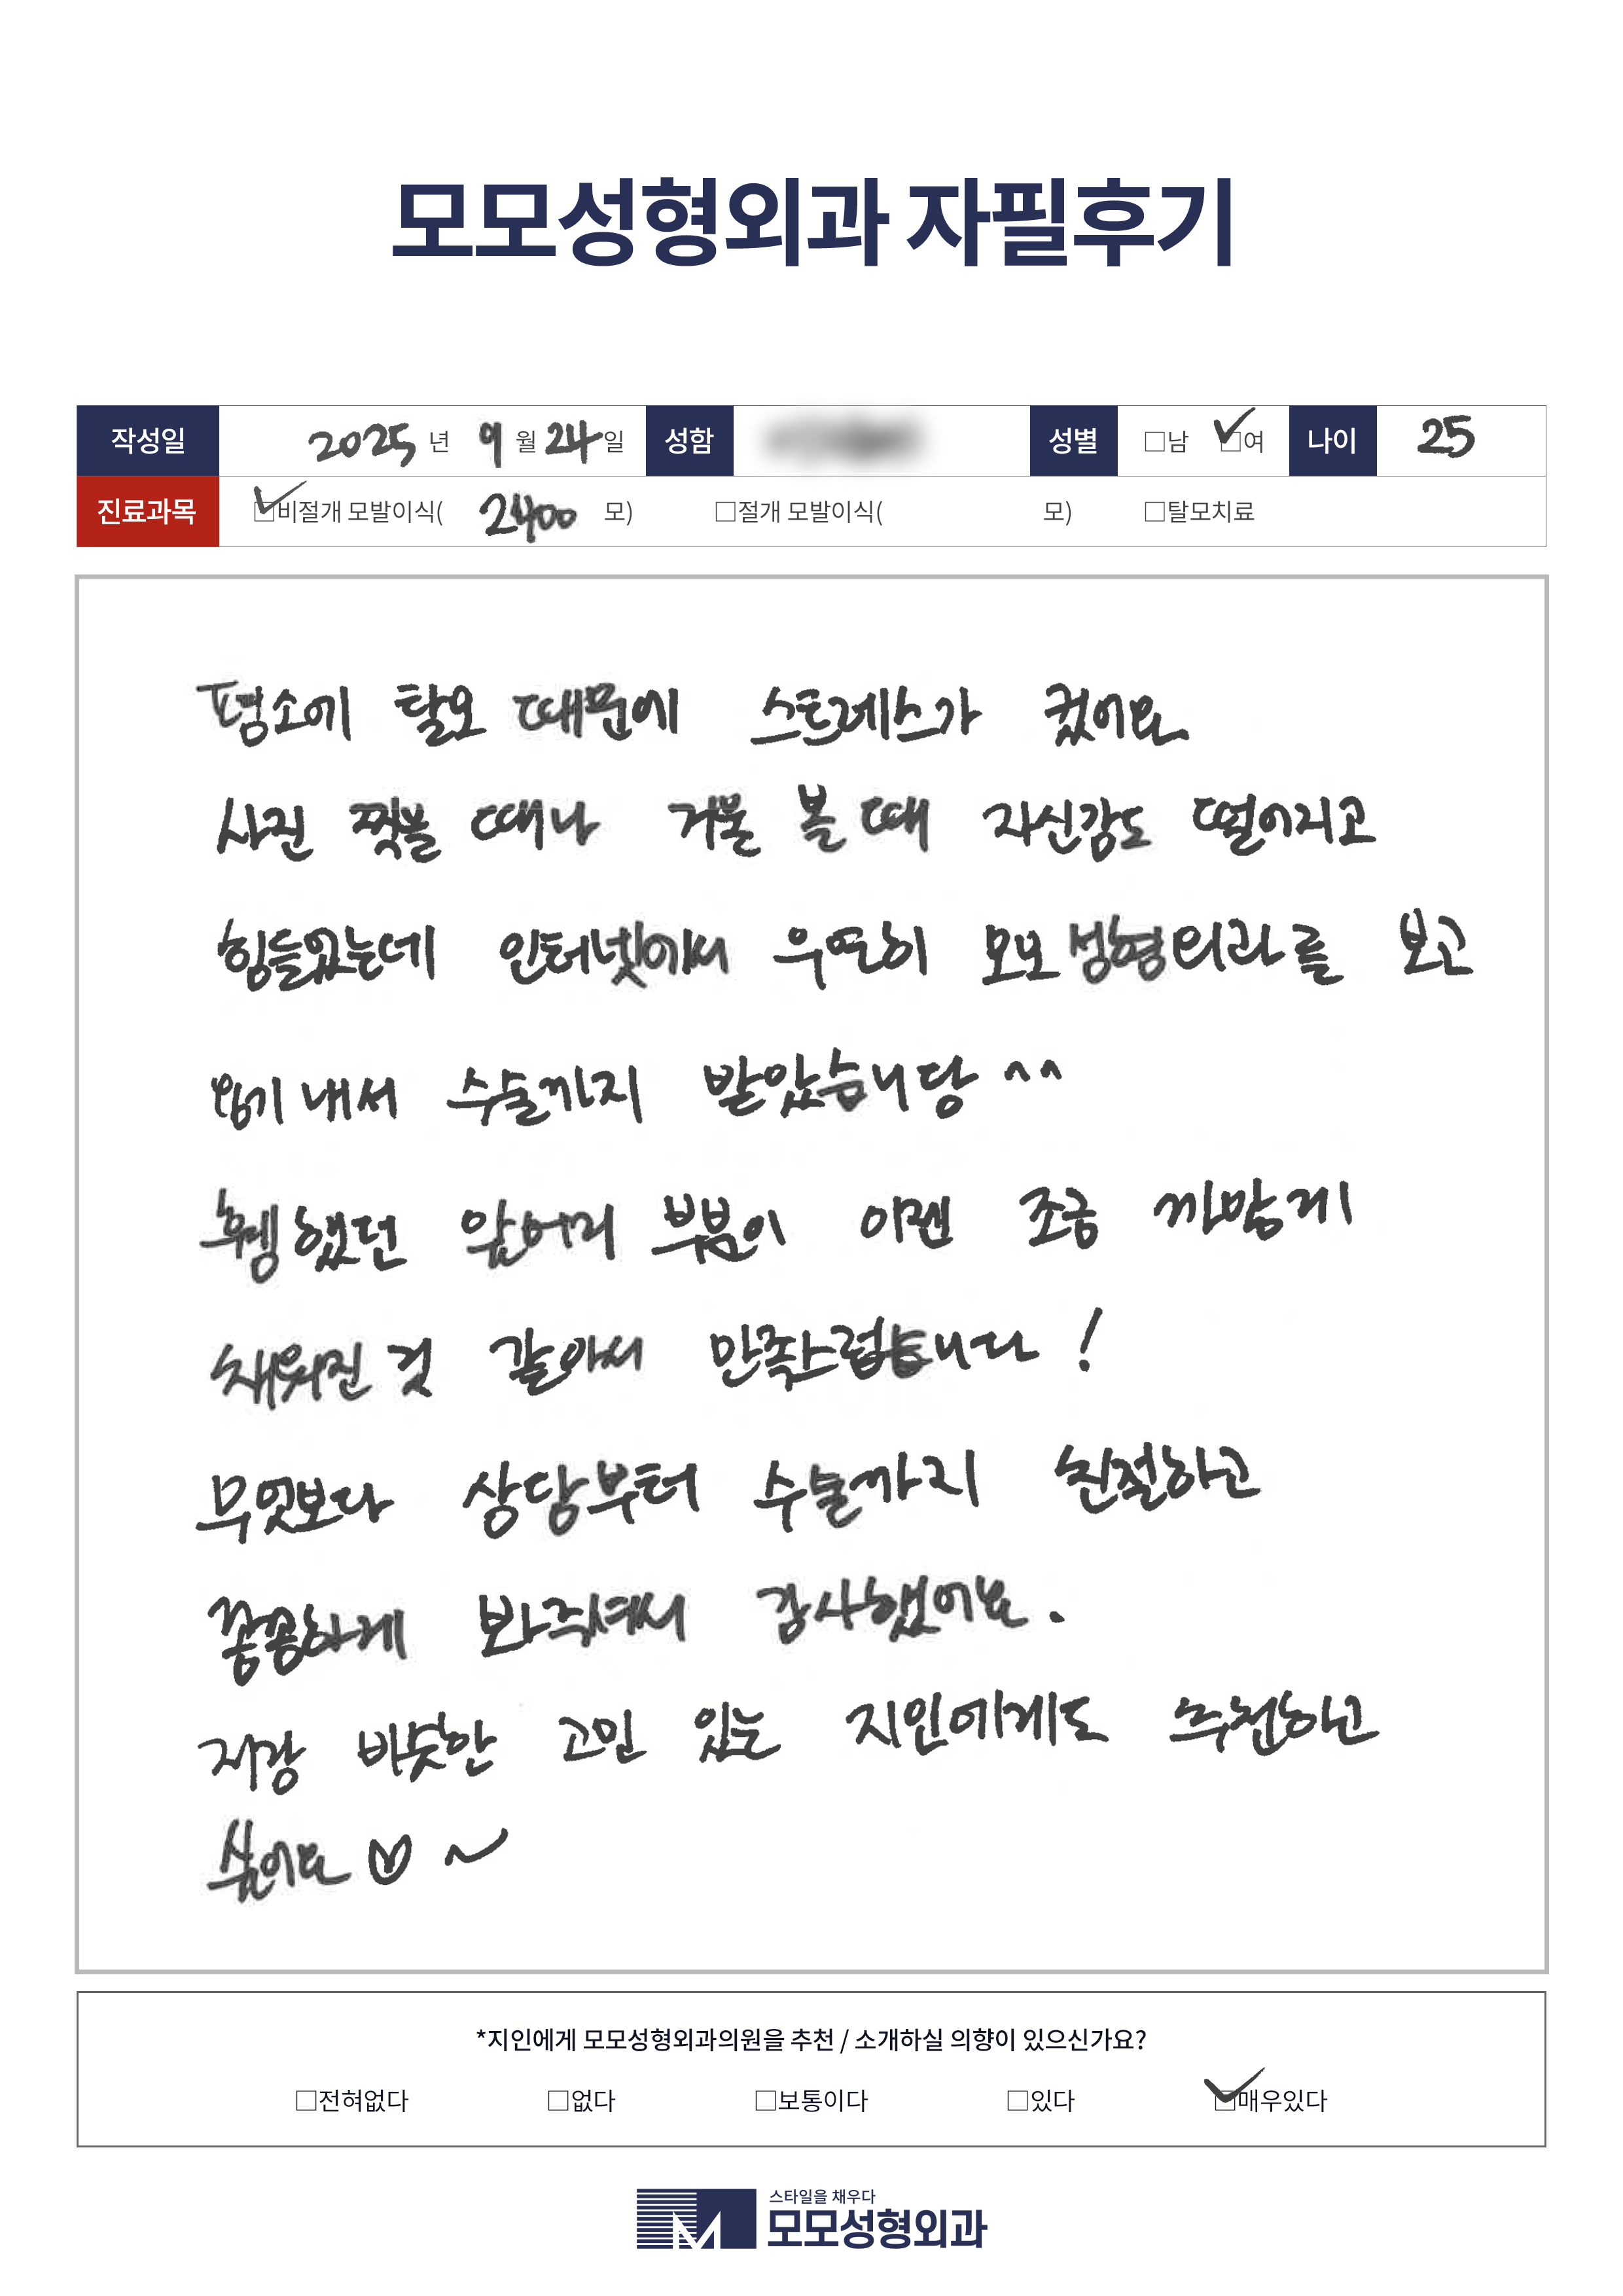 모모성형외과 자필후기
작성일 2025 년 9 월 24 일 성함 성별 □남 ☑여 나이 25
진료과목 ☑비절개 모발이식( 2400 모) □절개 모발이식( 모) □탈모치료
평소에 탈모 때문에 스트레스가 컸어요
사진 찍을 때나 거울 볼 때 자신감도 떨어지고
힘들었는데 인터넷에서 우연히 모모성형외과를 보고
용기내서 수술까지 받았습니당 ^^
휑했던 앞머리 부분이 이젠 조금 까맣게
채워진 것 같아서 만족스럽습니다!
무엇보다 상담부터 수술까지 친절하고
꼼꼼하게 봐주셔서 감사했어요.
저랑 비슷한 고민 있는 지인에게도 추천하고
싶어요 ♡ ~
*지인에게 모모성형외과의원을 추천 / 소개하실 의향이 있으신가요?
□전혀없다 □없다 □보통이다 □있다 ☑매우있다
스타일을 채우다
모모성형외과